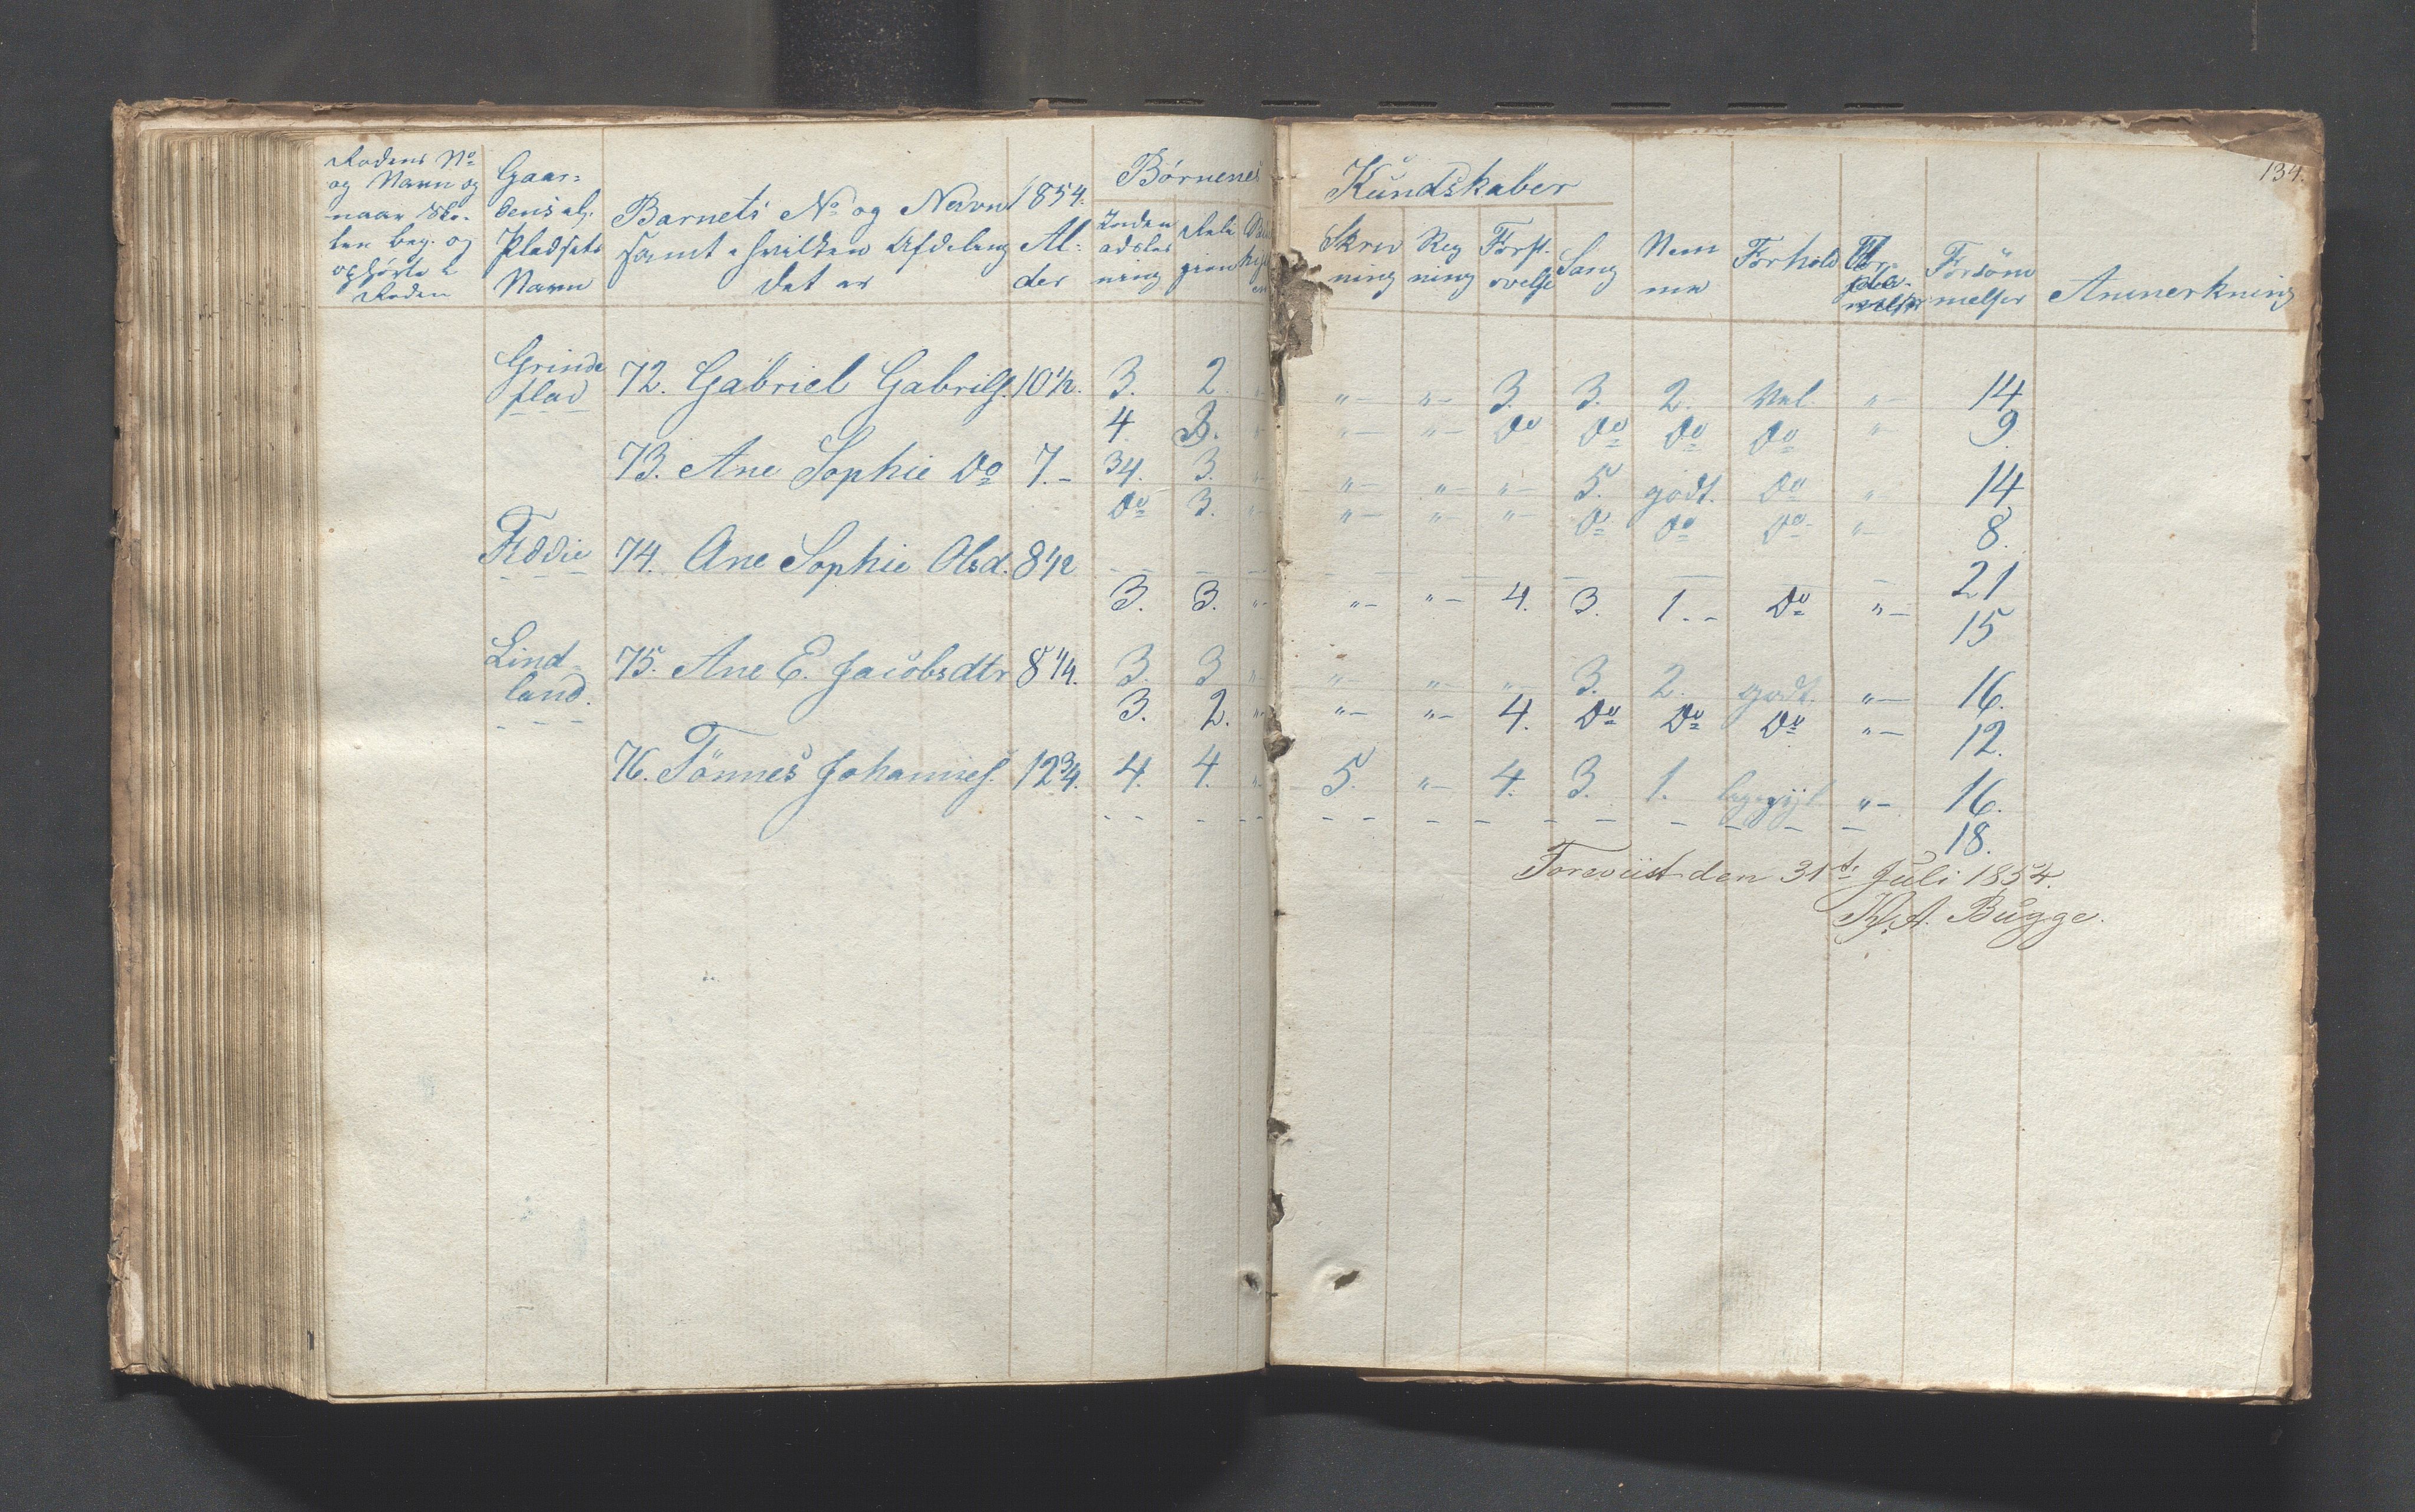 134.
Rodens No
og Navn og
naar Sko-
len beg. og
ophørte i
Roden
Gaar-
dens el.
Pladsets
Navn
Barnets No og Navn
samt i hvilken Afdeling
det er
1854.
Al-
der
Børnenes Kundskaber
Inden
adslæs
ning
Reli
gion
Skriv
ning
Reg
ning
Forst.
øvelse
Sang
Nem
me
Forhold
Forsøm
melser
Anmerkning
Grinde 72. Gabriel Gabriels. 10 1/2. 3. 2 "- "- 3. 3. 2. Vel. "- 14
flad 4 3. "- "- "- do do do do " 9.
73. Ane Sophie do 7.- 34. 3. "- "- "- "- 5. godt. do " 14
do 3. "- "- "- "- do do do "- 8.
Feddie 74. Ane Sophie Olsd. 8 1/2 - - - - - - - - 21
3. 3. "- "- "- 4. 3. 1.- do "- 15
Lind- 75. Ane E. Jacobsdtr 8 1/4. 3. 3 " "- "- "- 3. 2. godt. "- 16.
land. 3. 2. "- "- "- 4. do do do "- 12.
76. Tönnes Johannes. 12 3/4. 4. 4. "- 5. "- 4. 3. 1. "- 16.
- - - - - - - - - - - 18.
Foreviist den 31te Juli 1854.
A. Bugge.